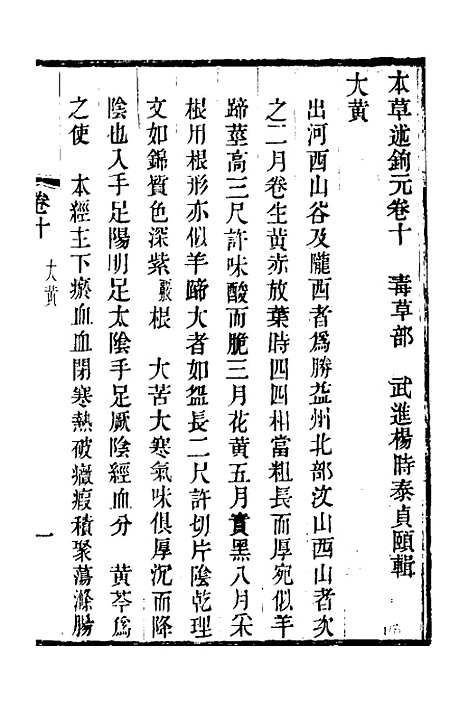 本草述鉤元卷十　毒草部　武進楊時泰貞頤輯
大黃
出河西山谷及隴西者爲勝益州北部汶山西山者次
之二月卷生黃赤放葉時四四相當粗長而厚宛似羊
蹄莖高三尺許味酸而脆三月花黃五月實黑八月采
根用根形亦似羊蹄大者如盌長二尺許切片陰乾理
文如錦質色深紫 根　大苦大寒氣味俱厚沉而降
陰也入手足陽明足太陰手足厥陰經血分　黃芩爲
之使　本經主下瘀血血閉寒熱破癥瘕積聚蕩滌腸
卷十
大黃
一